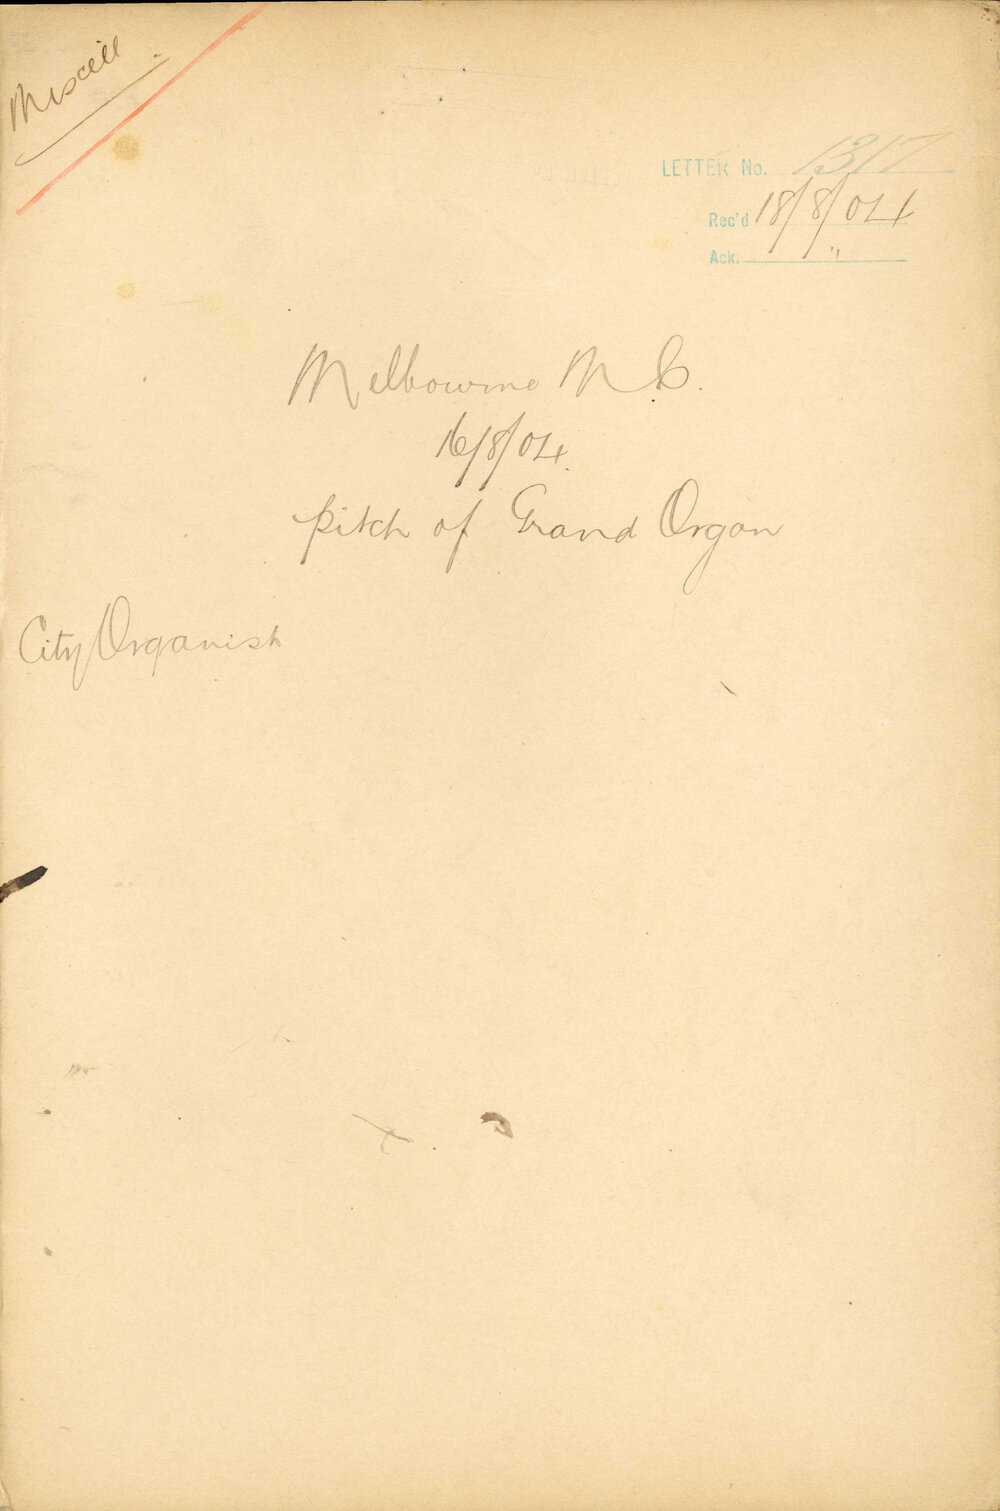 Miscell
LETTER No. 1317
Rec'd 18/8/04
Ack. "
Melbourne M C.
16/8/04.
pitch of Grand Organ
City Organist